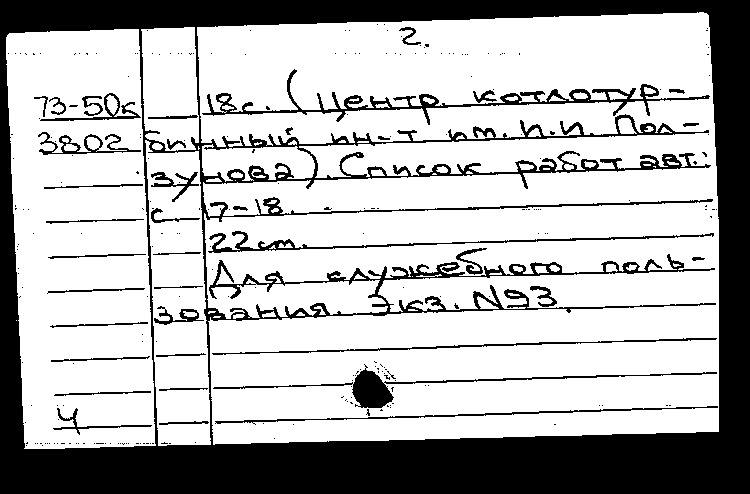 2.
73-50к 18с. (Центр. котлотур-
3802 бинный ин-т им. И.И. Пол-
зунова). Список работ авт.:
с. 17-18.
22 см.
Для служебного поль-
зования. Экз. N93.
Ч